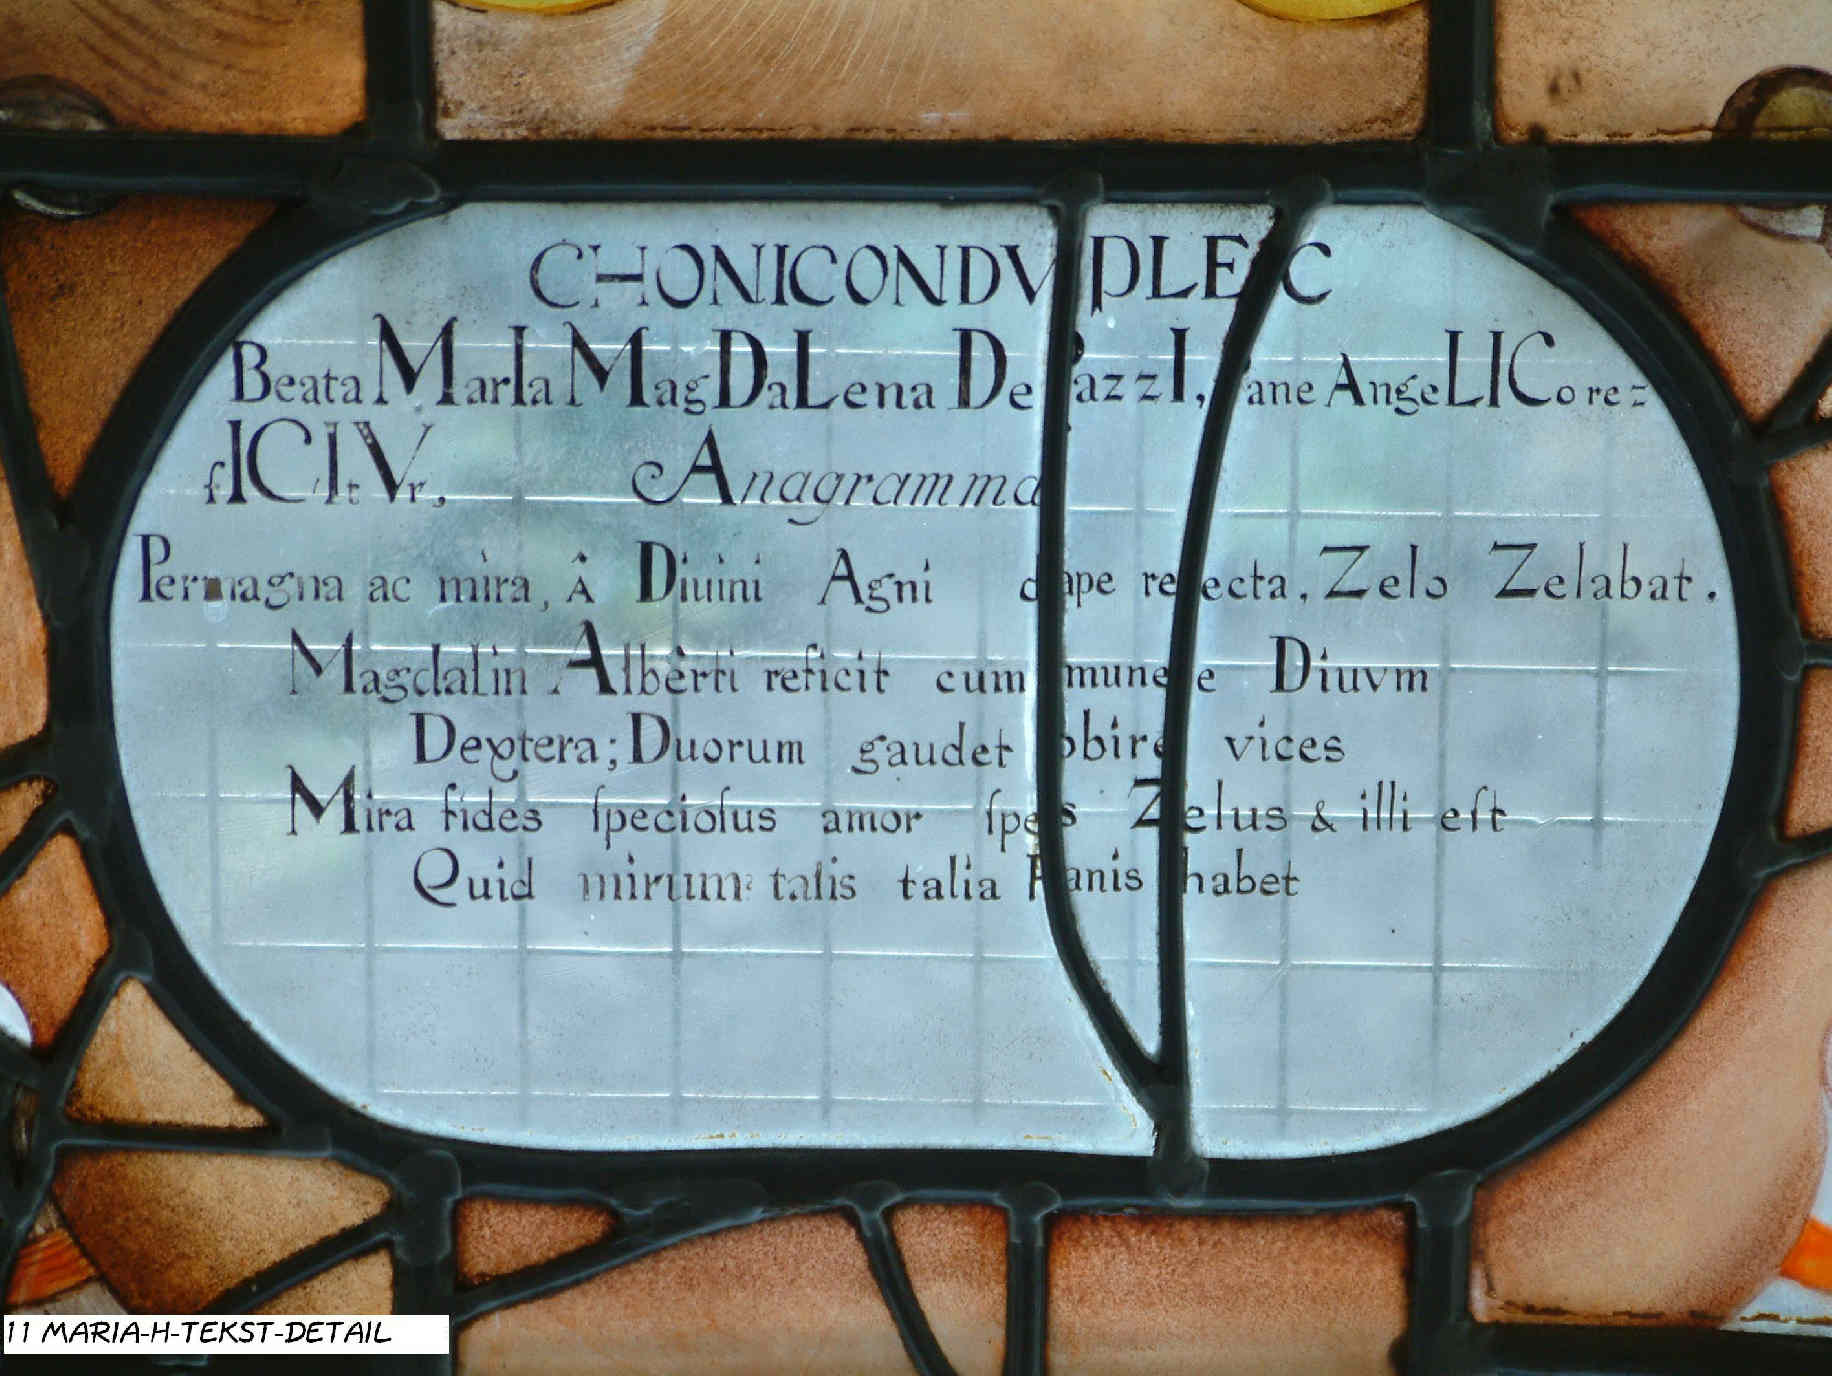 CHONICONDVPLEC
Beata MarIa MagDaLena De PazzI, Pane AngeLICo re=
fICItVr, Anagramma
Permagna ac mira, â Diuini Agni dape refecta, Zelo Zelabat.
Magdalin Albèrti reficit cum munere Diuvm
Dextera; Duorum gaudet obire vices
Mira fides ſpecioſus amor ſpes Zelus & illi eſt
Quid mirum: talis talia Panis habet
11 MARIA-H-TEKST-DETAIL